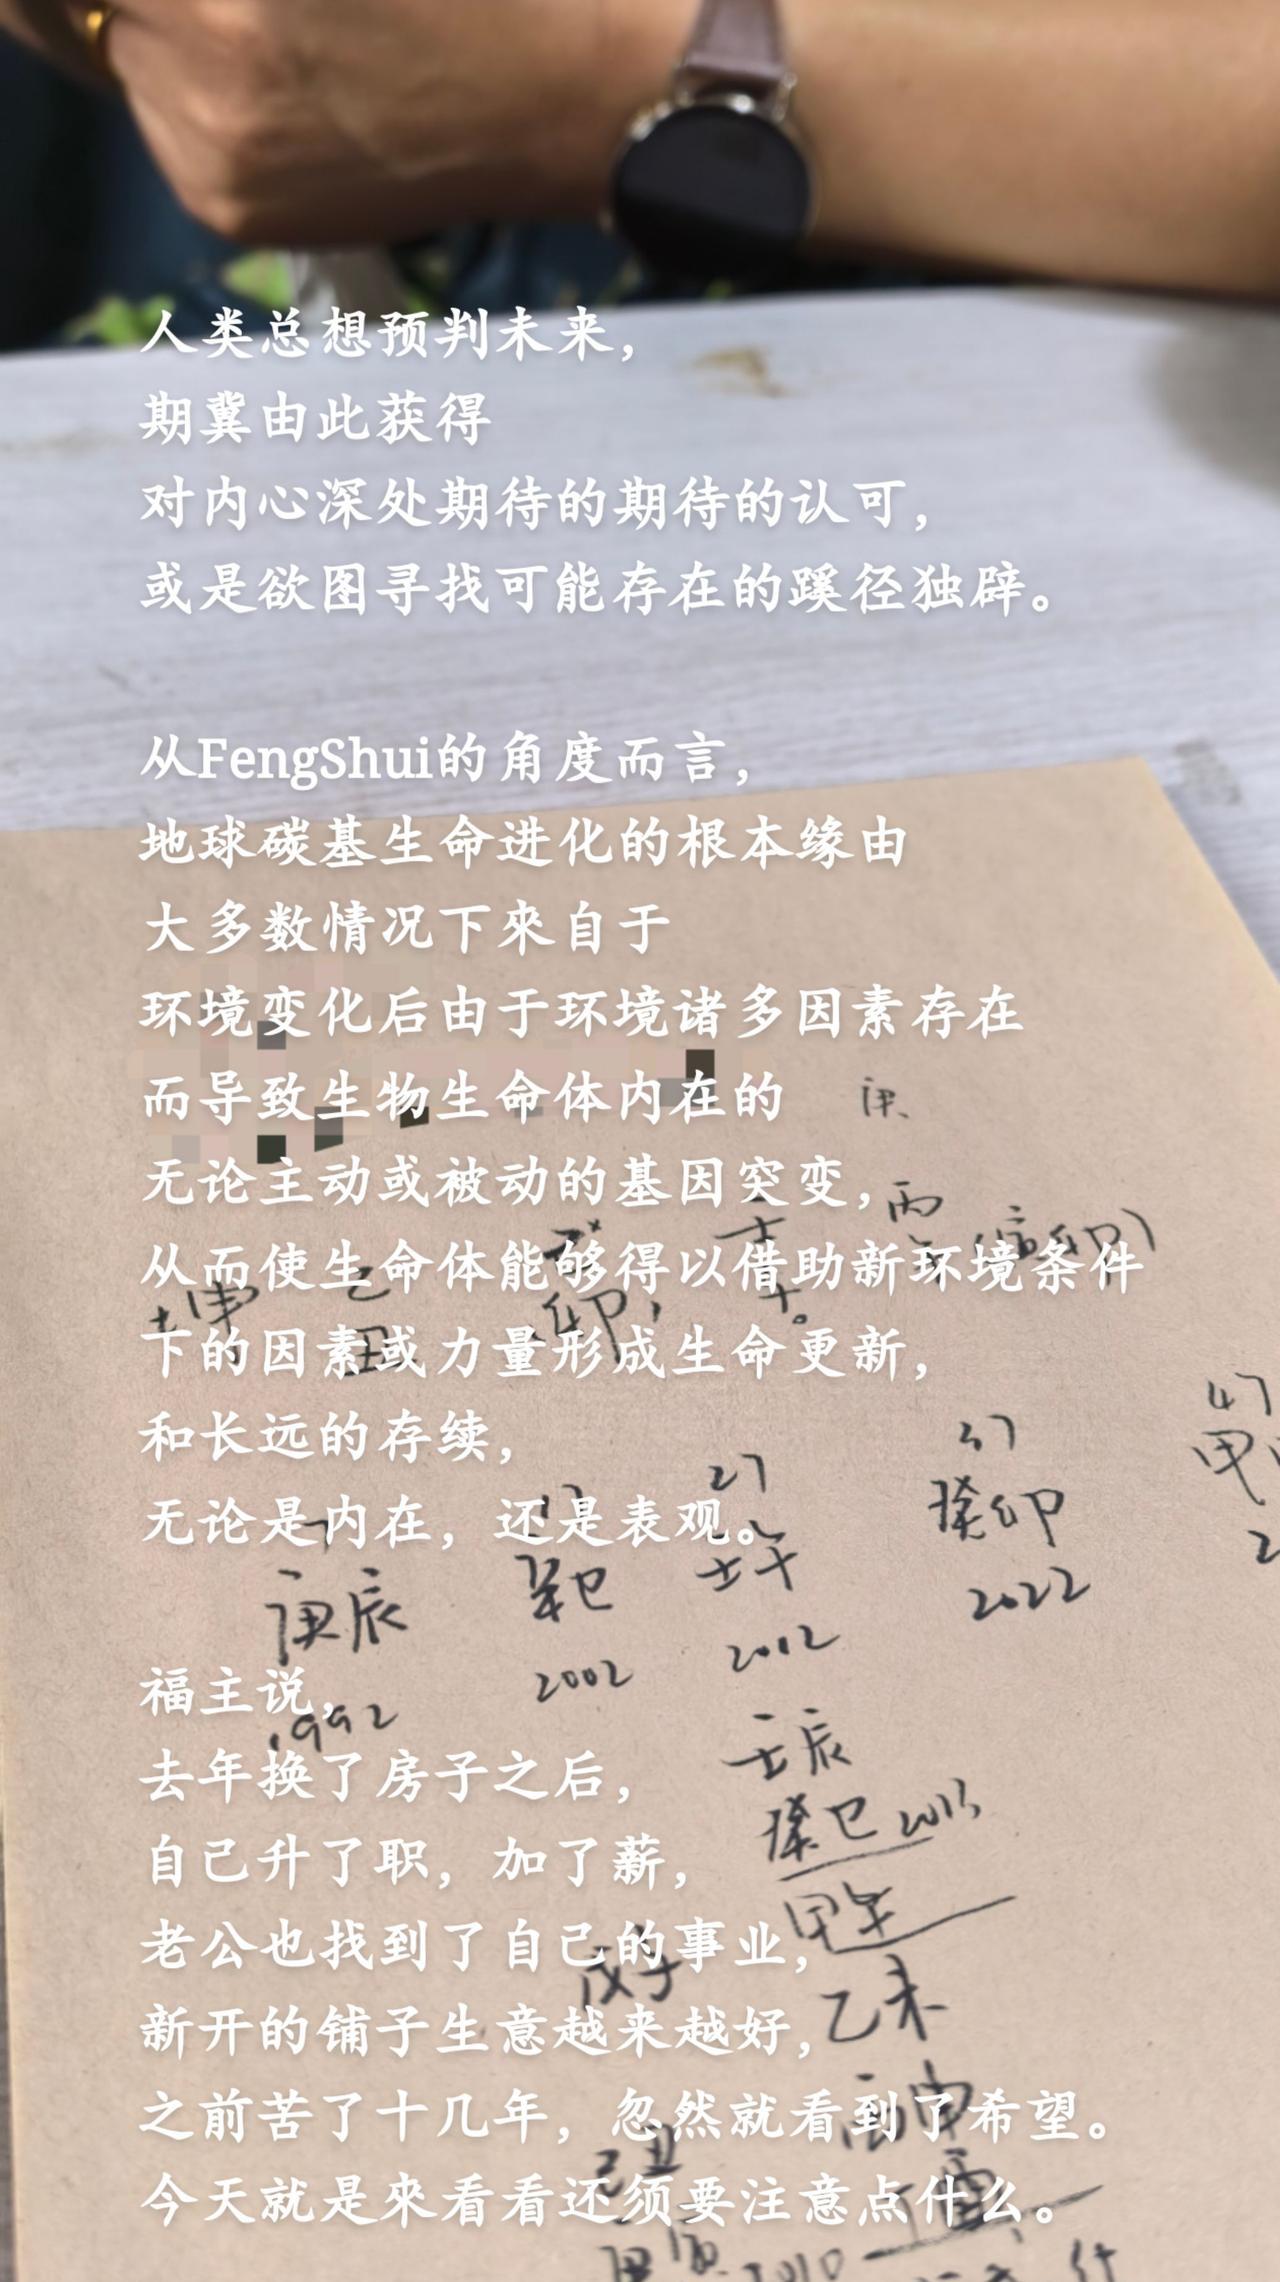 人类总想预判未来，
期冀由此获得
对内心深处期待的期待的认可，
或是欲图寻找可能存在的蹊径独辟。
从FengShui的角度而言，
地球碳基生命进化的根本缘由
大多数情况下來自于
环境变化后由于环境诸多因素存在
而导致生物生命体内在的
庚
无论主动或被动的基因突变，
丙
从而使生命体能够得以借助新环境条件
下的因素或力量形成生命更新，
和长远的存续，
47
37
27
癸卯
无论是内在，还是表观。
庚辰
壬午
2022
2012
2002
福主说，
1992
壬辰
去年换了房子之后，
癸巳 2013
自己升了职，加了薪，
甲午
老公也找到了自己的事业，
戊子
乙未
新开的铺子生意越来越好，
之前苦了十几年，忽然就看到了希望。
丙申
己丑
今天就是來看看还须要注意点什么。
2010